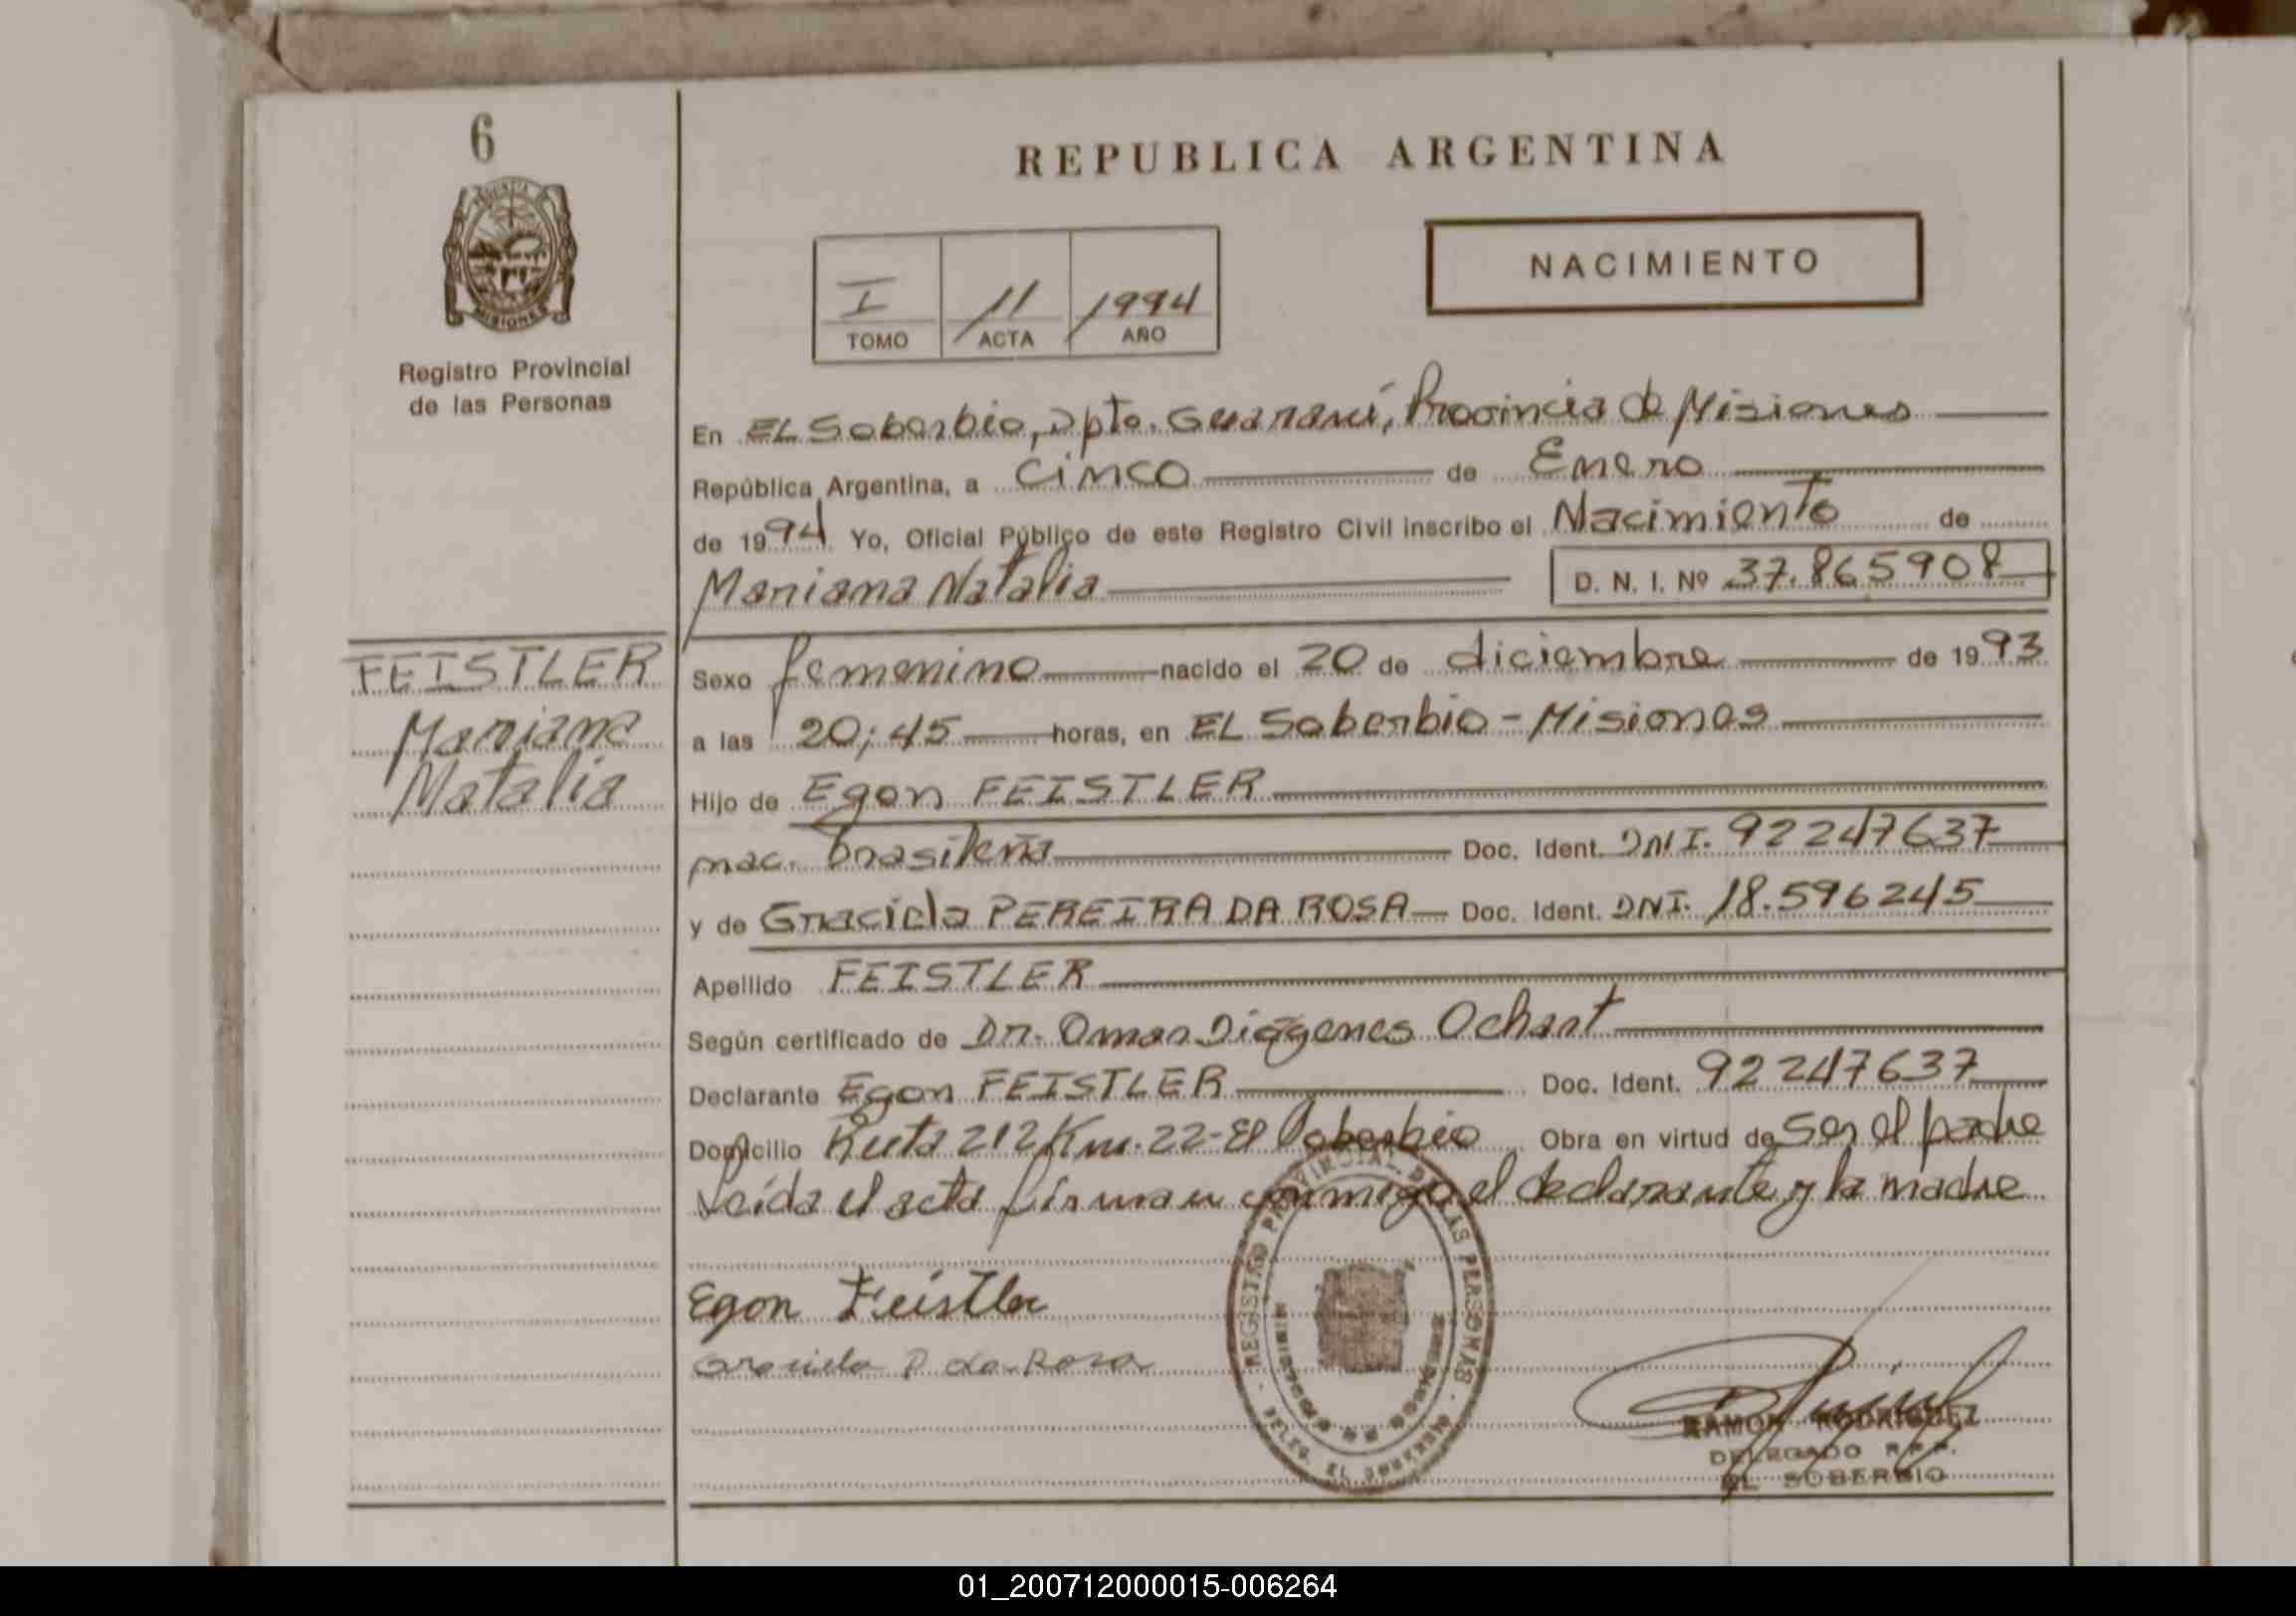 6
PROVINCIA
MISIONES
Registro Provincial
de las Personas
REPUBLICA ARGENTINA
NACIMIENTO
I 11 1994
TOMO ACTA AÑO
En EL Soberbio, Dpto. Guaraní, Provincia de Misiones
República Argentina, a Cinco de Enero
de 1994 Yo, Oficial Público de este Registro Civil inscribo el Nacimiento de
Mariana Natalia D. N. I. Nº 37.865908
FEISTLER
Mariana
Natalia
Sexo femenino nacido el 20 de diciembre de 1993
a las 20;45 horas, en EL Soberbio - Misiones
Hijo de Egon FEISTLER
nac. brasileña Doc. Ident. DNI. 92247637
y de Graciela PEREIRA DA ROSA Doc. Ident. DNI. 18.596245
Apellido FEISTLER
Según certificado de Dr. Omar Diógenes Ochart
Declarante Egon FEISTLER Doc. Ident. 92247637
Domicilio Ruta 212 Km. 22 - El Soberbio Obra en virtud de ser el padre
Leída el acta firman conmigo el declarante y la madre
Egon Feistler
Graciela P. da Rosa
REGISTRO PROVINCIAL DE LAS PERSONAS
RAMON RODRIGUEZ
DELEGADO R.P.P.
EL SOBERBIO
01_200712000015-006264